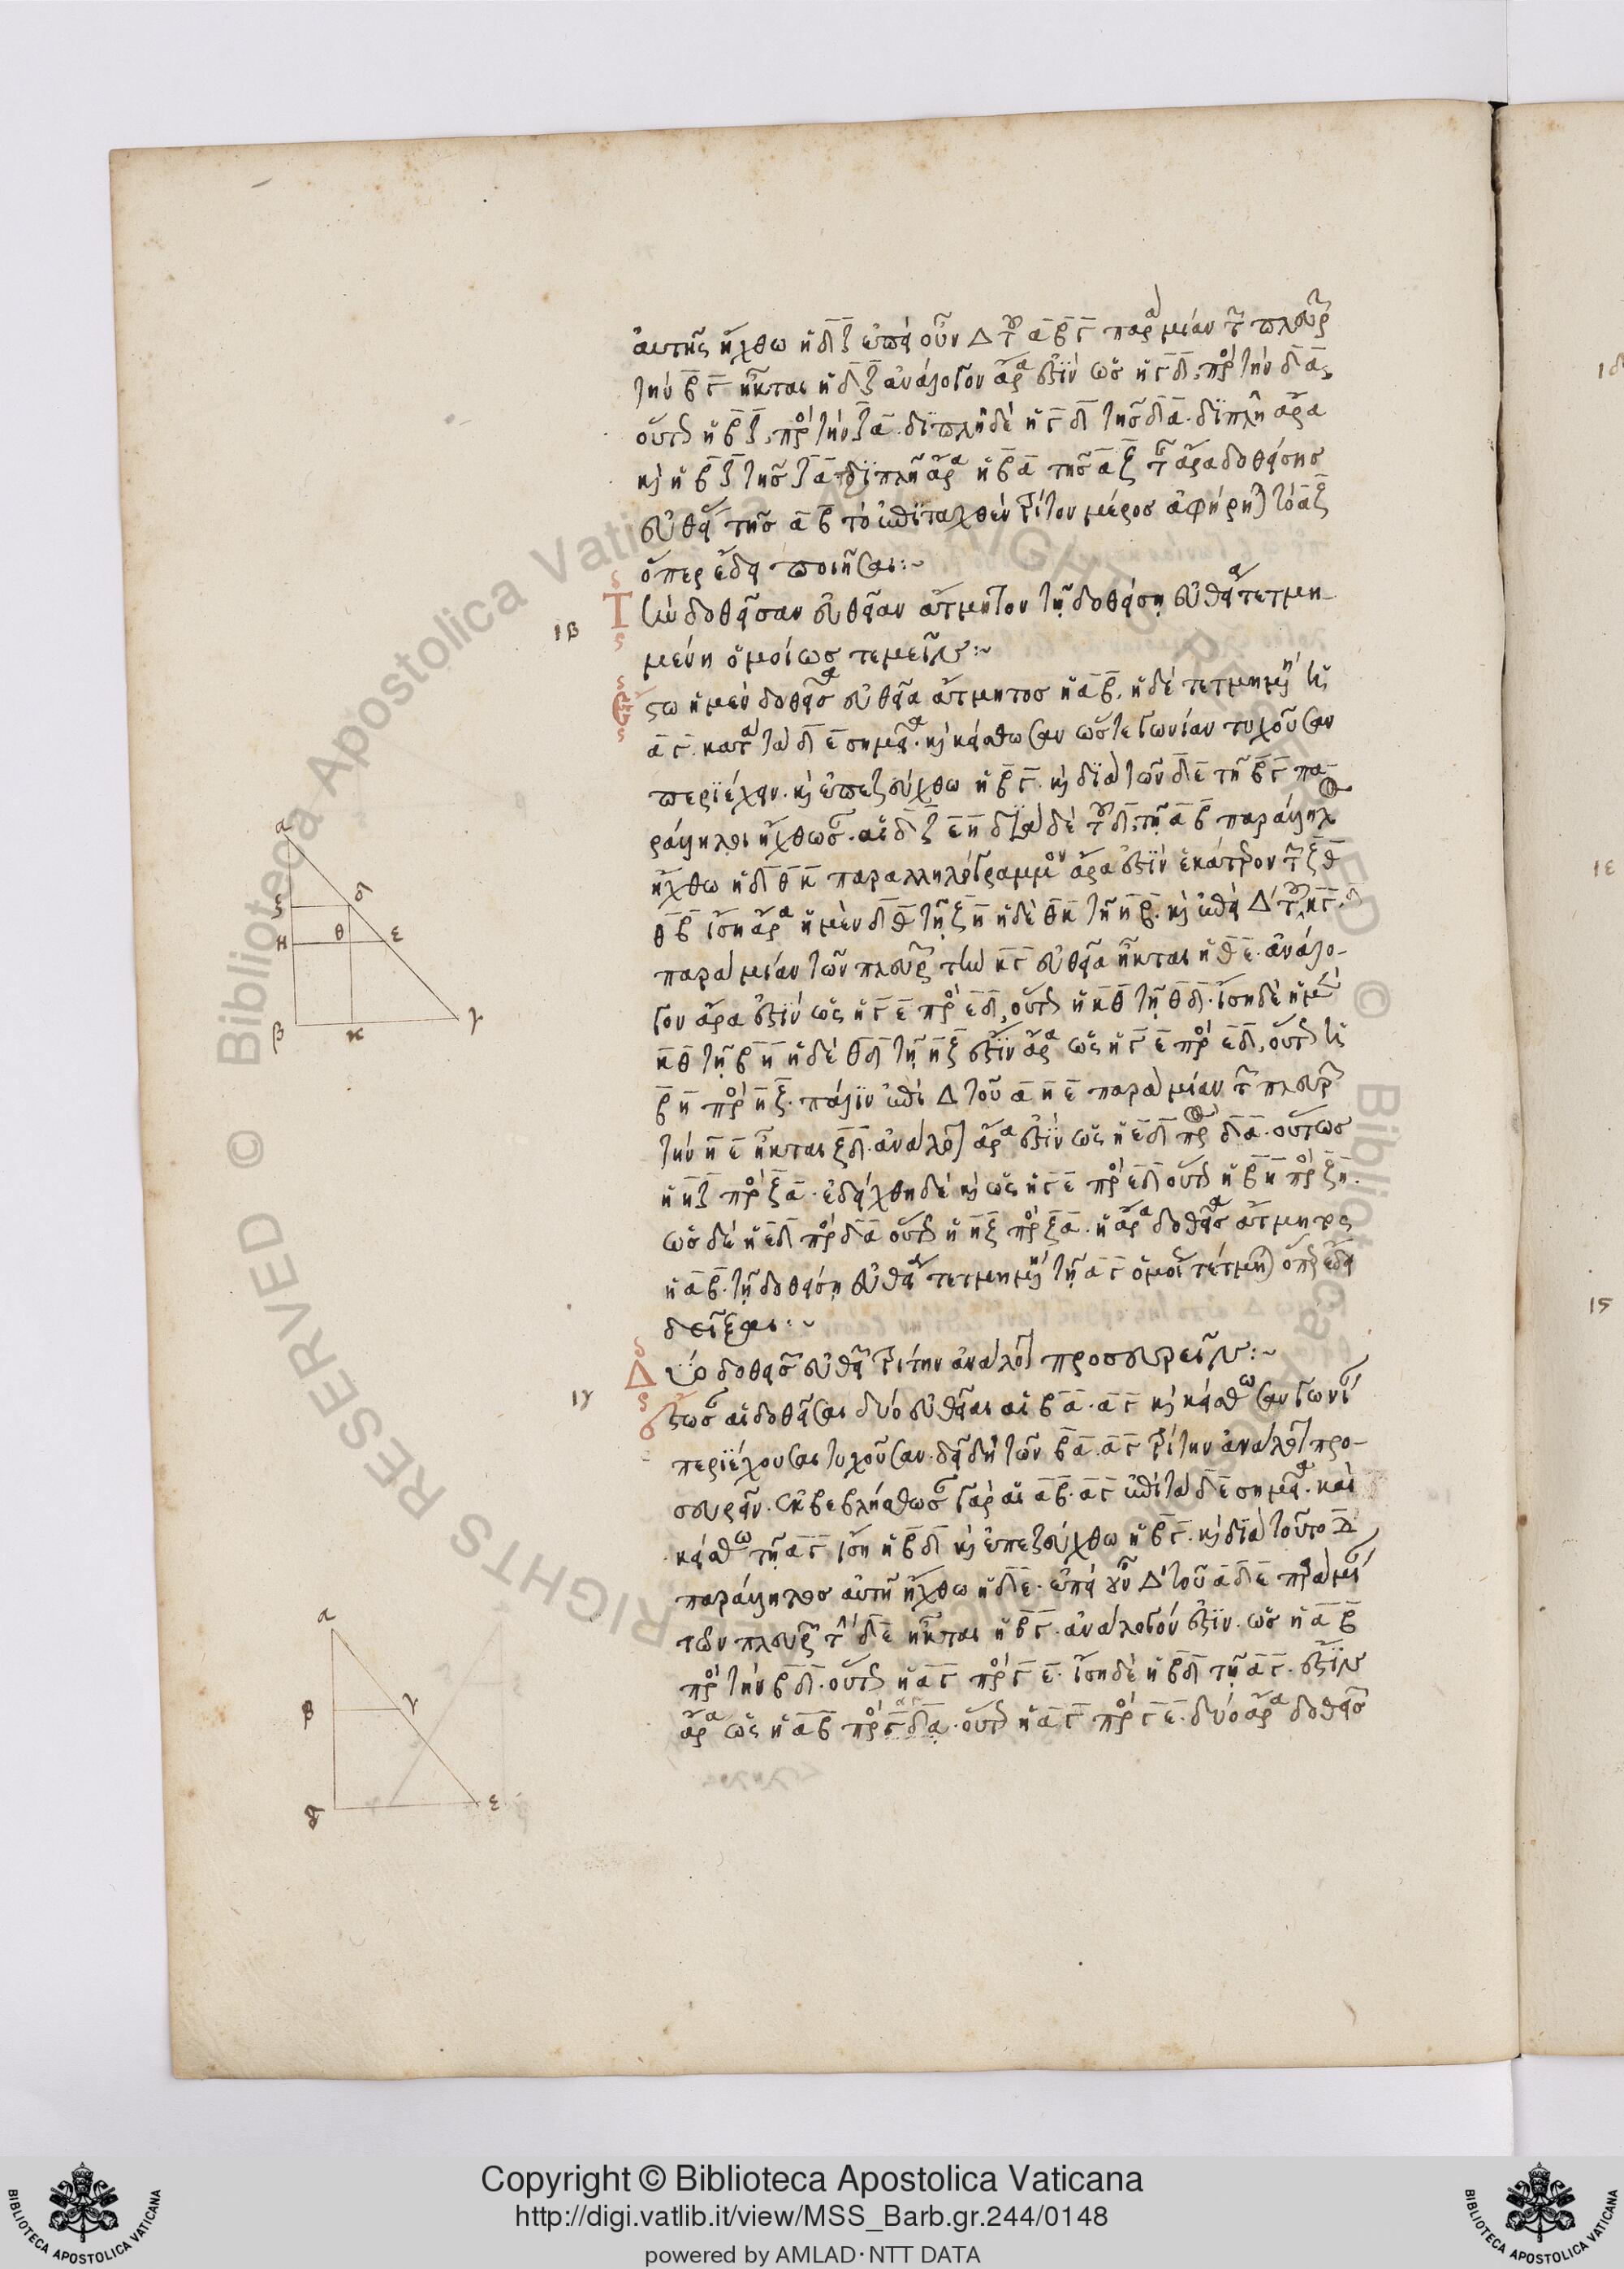 αὐτῆς ἤχθω ἡ δζ ἐπεὶ οὖν Δ τοῦ αβγ παρὰ μίαν τῶν πλευρῶν
τὴν βγ ἦκται ἡ δζ ἀνάλογον ἄρα ἐστὶν ὡς ἡ γδ πρὸς τὴν δα,
οὕτως ἡ βζ πρὸς τὴν ζα. διπλῆ δὲ ἡ γδ τῆς δα. διπλῆ ἄρα
καὶ ἡ βζ τῆς ζα τριπλῆ ἄρα ἡ βα τῆς αζ τῆς ἄρα δοθείσης
εὐθείας τῆς αβ τὸ ἐπιταχθὲν τρίτον μέρος ἀφῄρηται τὸ αζ
ὅπερ ἔδει ποιῆσαι:~
ιβ Τὴν δοθεῖσαν εὐθεῖαν ἄτμητον τῇ δοθείσῃ εὐθείᾳ τετμη-
μένῃ ὁμοίως τεμεῖν:~
Ἔστω ἡ μὲν δοθεῖσα εὐθεῖα ἄτμητος ἡ αβ, ἡ δὲ τετμημένη ἡ
αγ. κατὰ τὰ δ ε σημεῖα. καὶ κείσθωσαν ὥστε γωνίαν τυχοῦσαν
περιέχειν. καὶ ἐπεζεύχθω ἡ βγ. καὶ διὰ τῶν δε τῇ βγ πα-
ράλληλοι ἤχθωσαν αἱ δζ εη διὰ δὲ τοῦ δ τῇ αβ παράλληλος
ἤχθω ἡ δθκ παραλληλόγραμμον ἄρα ἐστὶν ἑκάτερον τῶν ζθ
θβ ἴση ἄρα ἡ μὲν δθ τῇ ζη ἡ δὲ θκ τῇ ηβ. καὶ ἐπεὶ Δ τοῦ κγδ
παρὰ μίαν τῶν πλευρῶν τὴν κγ εὐθεῖα ἦκται ἡ θε. ἀνάλο-
γον ἄρα ἐστὶν ὡς ἡ γε πρὸς εδ, οὕτως ἡ κθ τῇ θδ. ἴση δὲ ἡ μὲν
κθ τῇ βη ἡ δὲ θδ τῇ ηζ ἔστιν ἄρα ὡς ἡ γε πρὸς εδ, οὕτως ἡ
βη πρὸς ηζ. πάλιν ἐπεὶ Δ τοῦ αηε παρὰ μίαν τῶν πλευρῶν
τὴν ηε ἦκται ζδ. ἀνάλογον ἄρα ἐστὶν ὡς ἡ εδ πρὸς δα. οὕτως
ἡ ηζ πρὸς ζα. ἐδείχθη δὲ καὶ ὡς ἡ γε πρὸς εδ οὕτως ἡ βη πρὸς ζη.
ὡς δὲ ἡ εδ πρὸς δα οὕτως ἡ ηζ πρὸς ζα. ἡ ἄρα δοθεῖσα ἄτμητος
ἡ αβ. τῇ δοθείσῃ εὐθείᾳ τετμημένῃ τῇ αγ ὁμοίως τέτμηται ὅπερ ἔδει
δεῖξαι:~
ιγ Δύο δοθεισῶν εὐθειῶν τρίτην ἀνάλογον προσευρεῖν:~
ἔστωσαν αἱ δοθεῖσαι δύο εὐθεῖαι αἱ βα. αγ καὶ κείσθωσαν γωνίαν
περιέχουσαι τυχοῦσαν. δεῖ δὴ τῶν βα. αγ τρίτην ἀνάλογον προ-
σευρεῖν. ἐκβεβλήσθωσαν γὰρ αἱ αβ. αγ ἐπὶ τὰ δε σημεῖα. καὶ
κείσθω τῇ αγ ἴση ἡ βδ καὶ ἐπεζεύχθω ἡ βγ. καὶ διὰ τοῦτο δ
παράλληλος αὐτῇ ἤχθω ἡ δε. ἐπεὶ οὖν Δ τοῦ αδε παρὰ μίαν
τῶν πλευρῶν τὴν δε ἦκται ἡ βγ. ἀνάλογόν ἐστιν. ὡς ἡ αβ
πρὸς τὴν βδ. οὕτως ἡ αγ πρὸς γε. ἴση δὲ ἡ βδ τῇ αγ. ἔστιν
ἄρα ὡς ἡ αβ πρὸς οὕτως ἡ αγ πρὸς γε. δύο ἄρα δοθεισῶν
α
ζ δ
η θ ε
β κ γ
α
β γ
δ ε
ιε
Copyright © Biblioteca Apostolica Vaticana
http://digi.vatlib.it/view/MSS_Barb.gr.244/0148
powered by AMLAD·NTT DATA
BIBLIOTECA APOSTOLICA VATICANA
BIBLIOTECA APOSTOLICA VATICANA